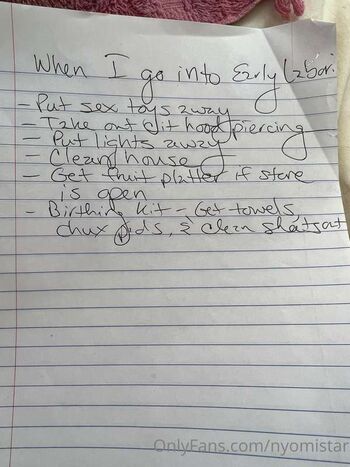 When I go into Early Labor:
- Put sex toys away
- Take out clit hood piercing
- Put lights away
- Clean house
- Get fruit platter if store
is open
- Birthing kit - Get towels,
chux pads, & clean sheets out
OnlyFans.com/nyomistar